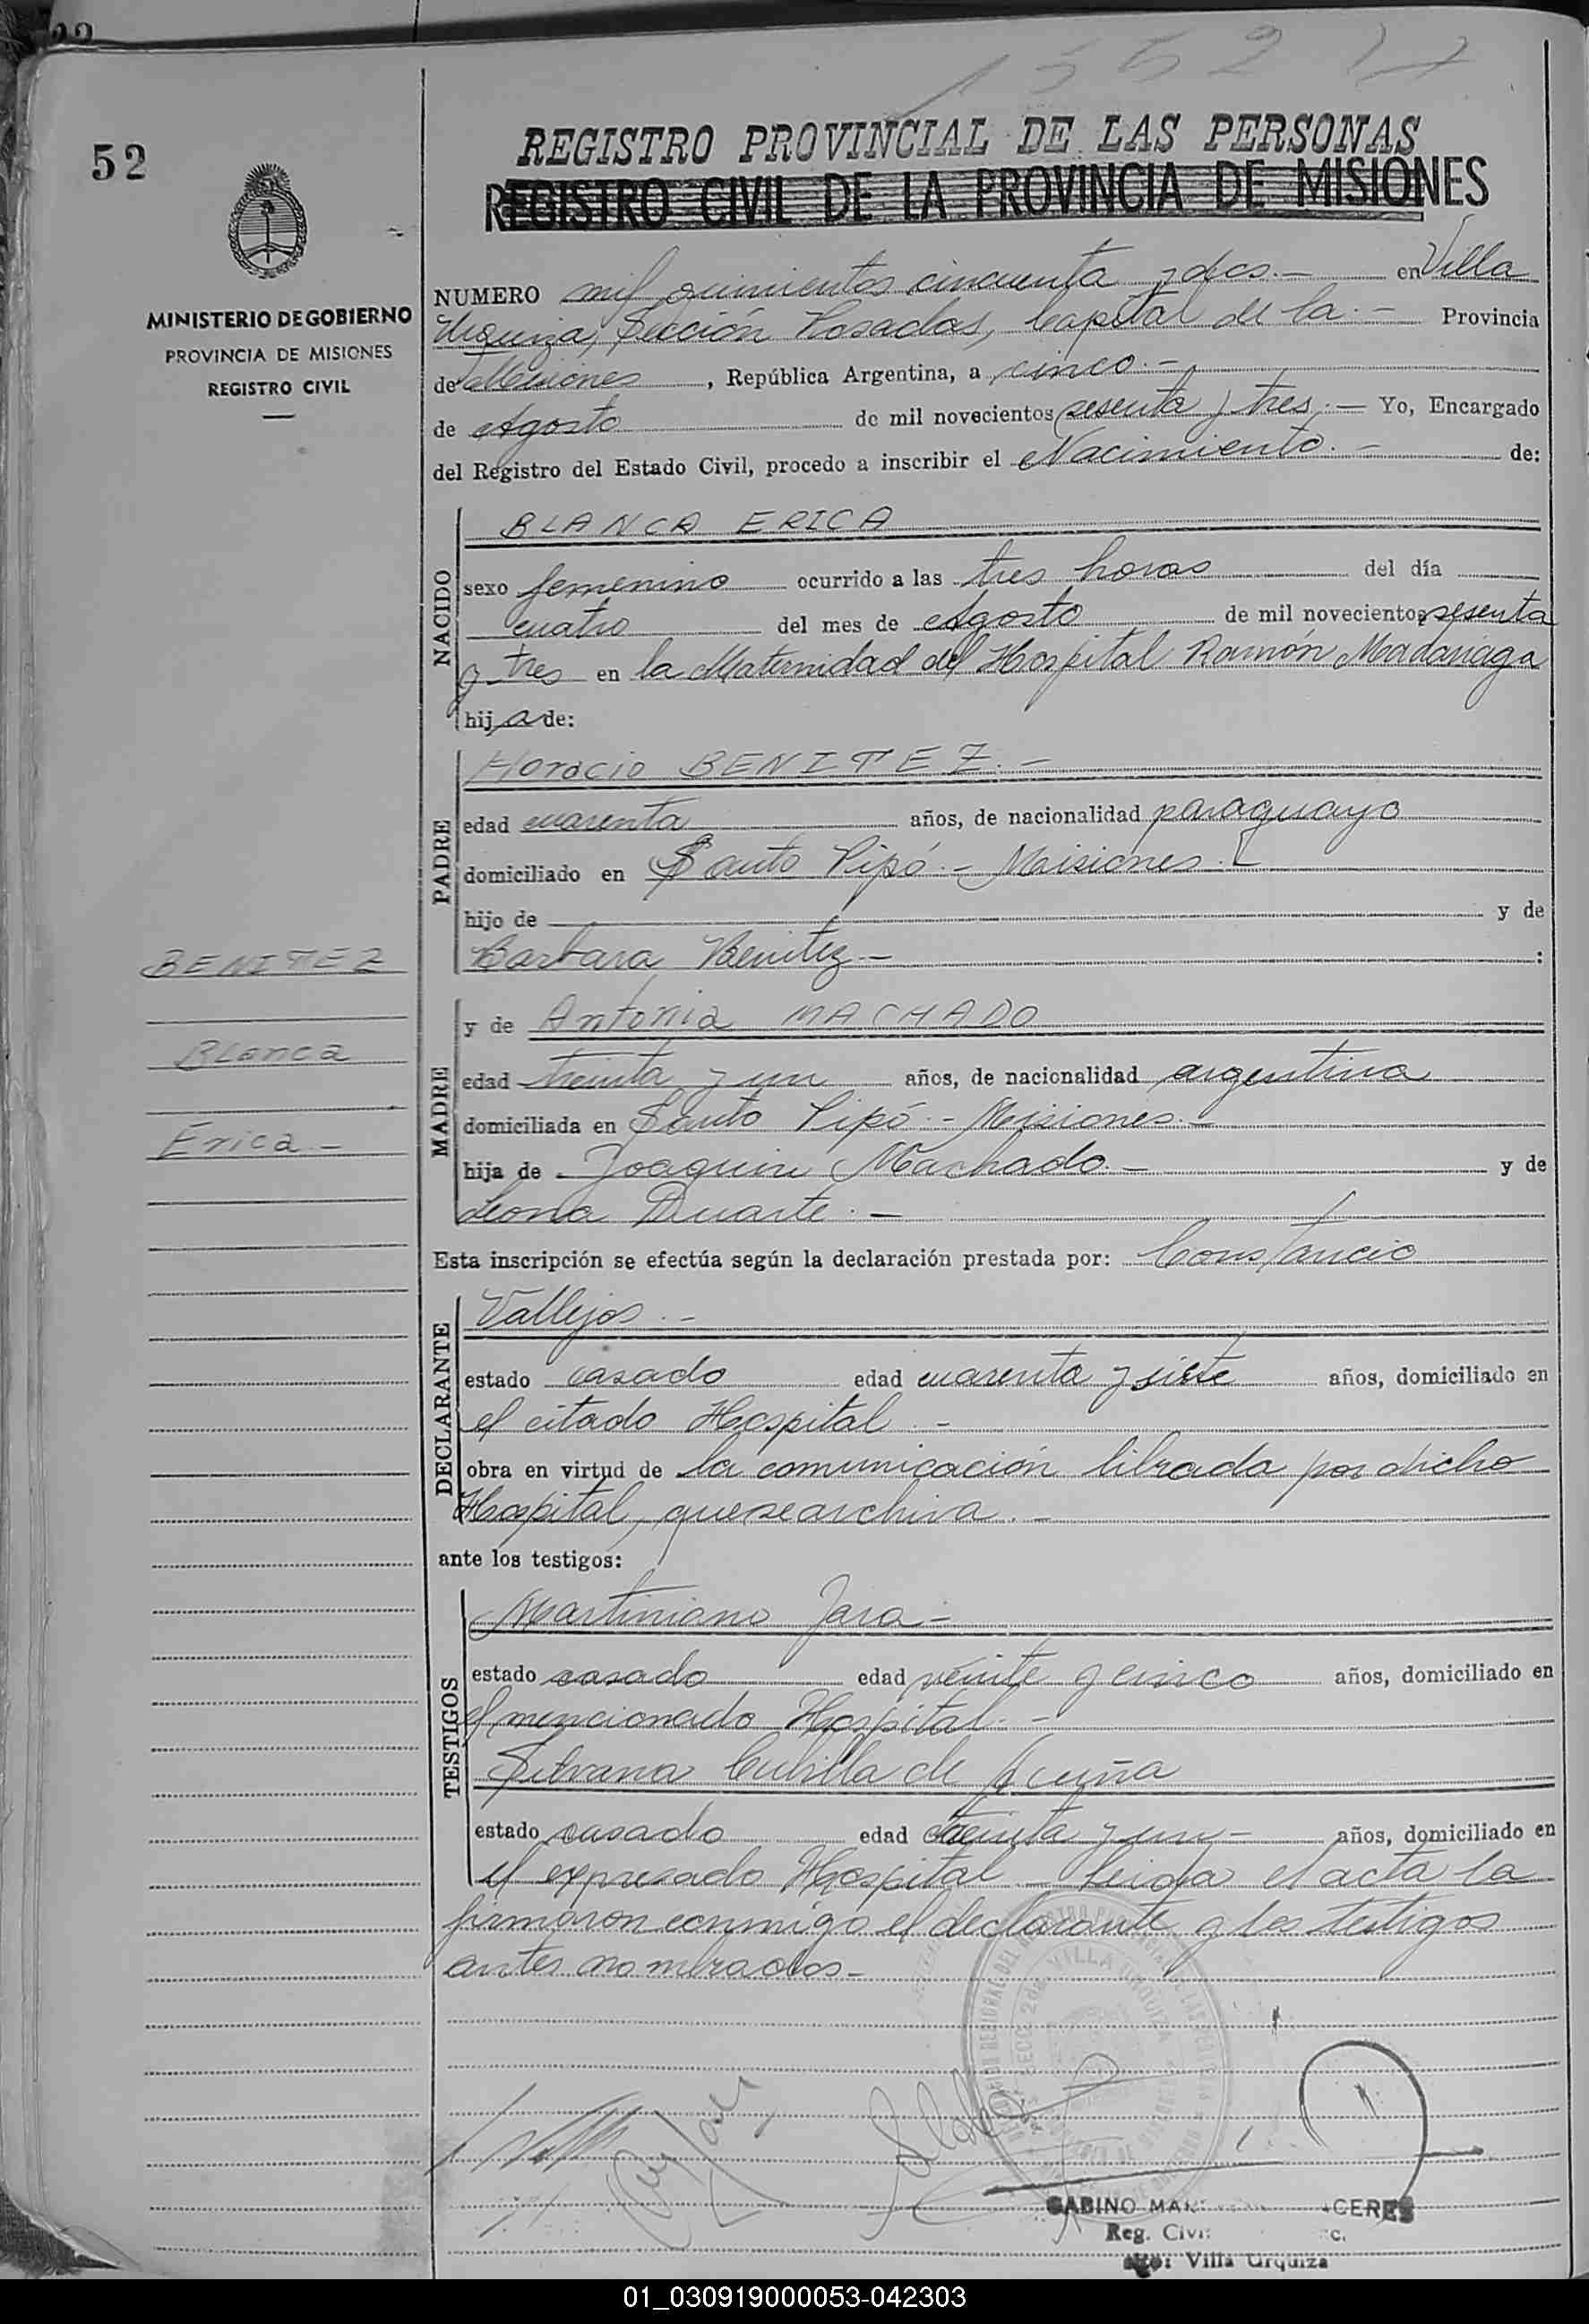 52
1552
REGISTRO PROVINCIAL DE LAS PERSONAS
REGISTRO CIVIL DE LA PROVINCIA DE MISIONES
MINISTERIO DE GOBIERNO
PROVINCIA DE MISIONES
REGISTRO CIVIL
NUMERO mil quinientos cincuenta y dos.- en Villa
Urquiza, Sección Posadas, Capital de la.- Provincia
de Misiones, República Argentina, a cinco.-
de Agosto de mil novecientos sesenta y tres.- Yo, Encargado
del Registro del Estado Civil, procedo a inscribir el Nacimiento.- de:
NACIDO
BLANCA ERICA
sexo femenino ocurrido a las tres horas del día
cuatro del mes de Agosto de mil novecientos sesenta
y tres en la Maternidad del Hospital Ramón Madariaga
hija de:
PADRE
Horacio BENITEZ.-
edad cuarenta años, de nacionalidad paraguayo
domiciliado en Santo Pipó.- Misiones.-
hijo de y de
Barbara Benitez.- :
BENITEZ
Blanca
Erica.-
MADRE
y de Antonia MACHADO
edad treinta y un años, de nacionalidad argentina
domiciliada en Santo Pipó.- Misiones.-
hija de Joaquin Machado.- y de
Leona Duarte.-
Esta inscripción se efectúa según la declaración prestada por: Constancio
DECLARANTE
Vallejos.-
estado casado edad cuarenta y siete años, domiciliado en
el citado Hospital.-
obra en virtud de la comunicación librada por dicho
Hospital, que se archiva.-
ante los testigos:
TESTIGOS
Martiniano Jara-
estado casado edad veinte y cinco años, domiciliado en
el mencionado Hospital.-
Silvana Cubilla de Acuña
estado casado edad treinta y un- años, domiciliado en
el expresado Hospital.- Leida el acta la
firmaron conmigo el declarante y los testigos
antes nombrados-
VILLA URQUIZA
GABINO
Reg.
Villa Urquiza
01_030919000053-042303